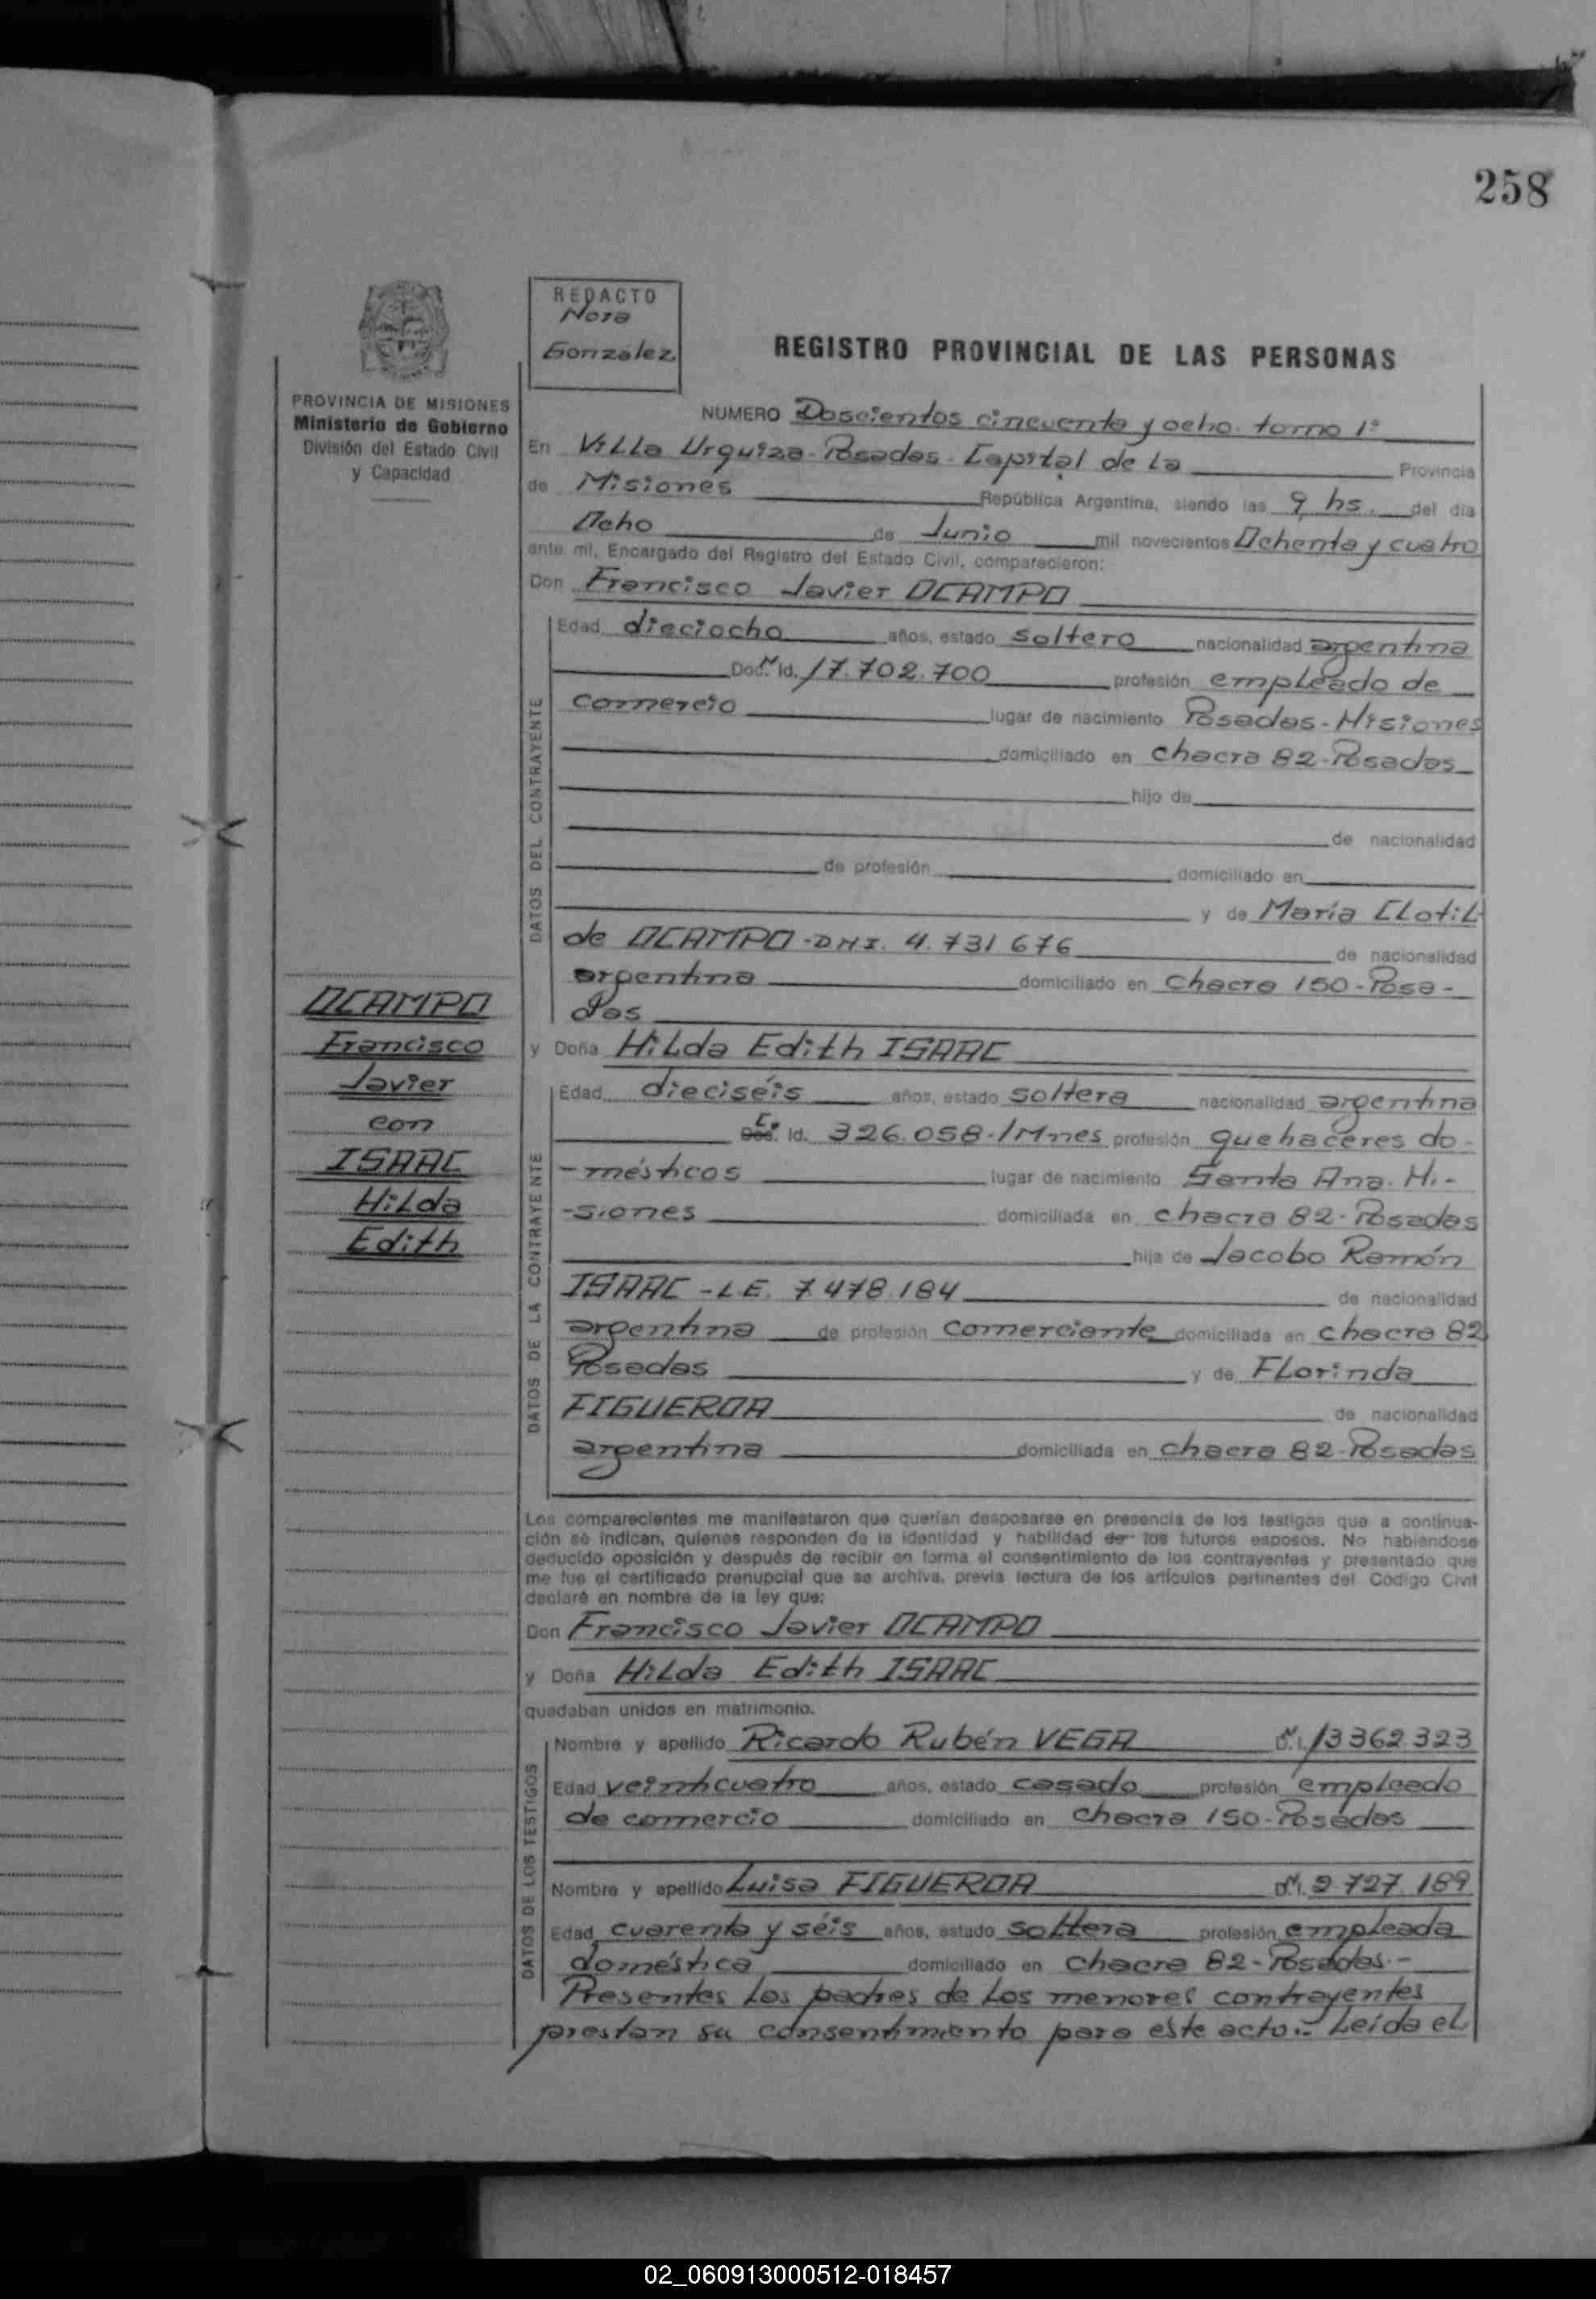 258
REDACTO
Nora
Gonzalez
REGISTRO PROVINCIAL DE LAS PERSONAS
PROVINCIA DE MISIONES
Ministerio de Gobierno
División del Estado Civil
y Capacidad
NUMERO Doscientos cincuenta y ocho. tomo 1º
En Villa Urquiza-Posadas-Capital de La Provincia
de Misiones República Argentina, siendo las 9 hs. del día
Ocho de Junio mil novecientos Ochenta y cuatro
ante mí, Encargado del Registro del Estado Civil, comparecieron:
Don Francisco Javier OCAMPO
DATOS DEL CONTRAYENTE
Edad dieciocho años, estado soltero nacionalidad argentina
Doc. Id. 17.702.700 profesión empleado de
comercio lugar de nacimiento Posadas-Misiones
domiciliado en chacra 82-Posadas
hijo de
de nacionalidad
de profesión domiciliado en
y de María Clotil
de OCAMPO-DNI. 4.731676 de nacionalidad
argentina domiciliado en chacra 150-Posa-
das
y Doña Hilda Edith ISAAC
DATOS DE LA CONTRAYENTE
Edad dieciséis años, estado soltera nacionalidad argentina
C. Id. 326.058-/Mnes profesión quehaceres do-
-mésticos lugar de nacimiento Santa Ana. Mi-
-siones domiciliada en chacra 82-Posadas
hija de Jacobo Ramón
ISAAC -L.E. 7.478.184 de nacionalidad
argentina de profesión comerciante domiciliada en chacra 82
Posadas y de Florinda
FIGUEROA de nacionalidad
argentina domiciliada en chacra 82-Posadas
OCAMPO
Francisco
Javier
con
ISAAC
Hilda
Edith
Los comparecientes me manifestaron que querían desposarse en presencia de los testigos que a continua-
ción se indican, quienes responden de la identidad y habilidad de los futuros esposos. No habiéndose
deducido oposición y después de recibir en forma el consentimiento de los contrayentes y presentado que
me fue el certificado prenupcial que se archiva, previa lectura de los artículos pertinentes del Código Civil
declaré en nombre de la ley que:
Don Francisco Javier OCAMPO
y Doña Hilda Edith ISAAC
quedaban unidos en matrimonio.
DATOS DE LOS TESTIGOS
Nombre y apellido Ricardo Rubén VEGA D.N.I. 13362.323
Edad veinticuatro años, estado casado profesión empleado
de comercio domiciliado en chacra 150-Posadas
Nombre y apellido Luisa FIGUEROA D.N.I. 2.727.189
Edad cuarenta y séis años, estado soltera profesión empleada
doméstica domiciliado en chacra 82-Posadas.-
Presentes los padres de los menores contrayentes
prestan su consentimiento para este acto.- Leída el
02_060913000512-018457